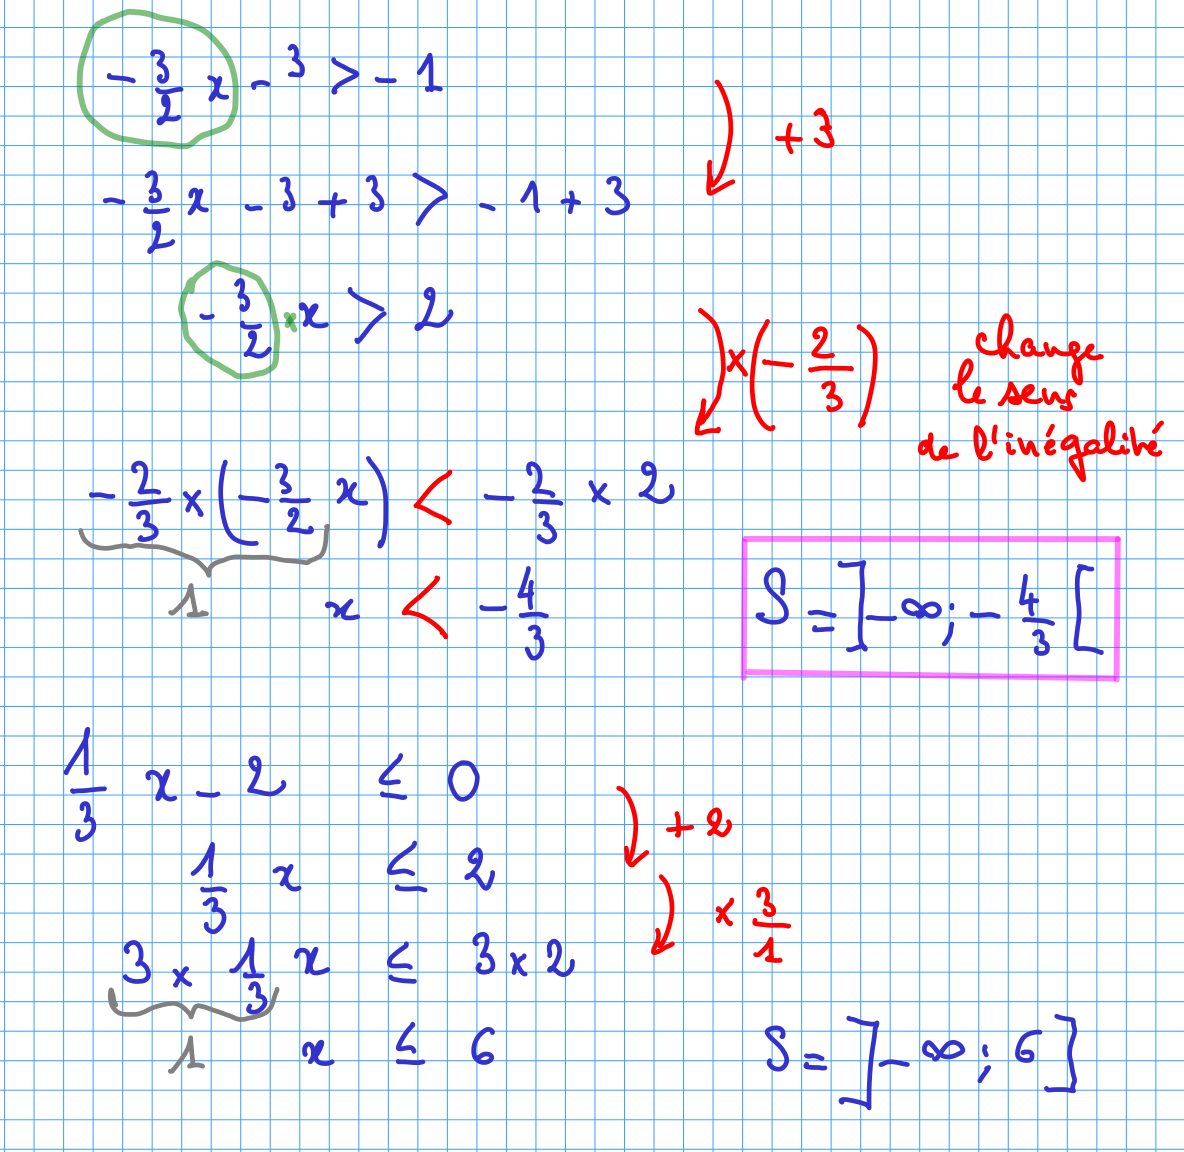 - 3/2 x - 3 > - 1
+ 3
- 3/2 x - 3 + 3 > - 1 + 3
- 3/2 × x > 2
× (- 2/3) change
le sens
de l'inégalité
- 2/3 × (- 3/2 x) < - 2/3 × 2
1 x < - 4/3
S = ]-∞; - 4/3 [
1/3 x - 2 ≤ 0
+ 2
1/3 x ≤ 2
× 3/1
3 × 1/3 x ≤ 3 × 2
1 x ≤ 6
S = ]-∞; 6]